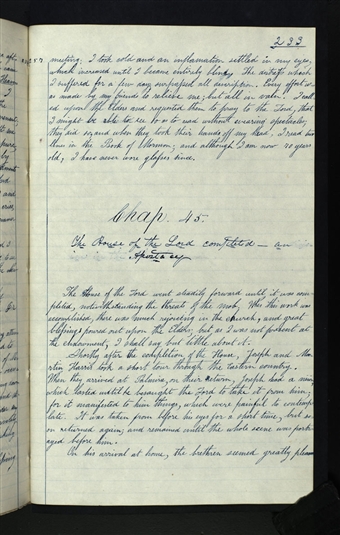 233
meeting, I took cold and an inflammation settled in my eyes,
which increased until I became entirely blind. The distress which
I suffered for a few days surpassed all description. Every effort
was made by my friends to relieve me; but all in vain. I call-
ed upon the Elders and requested them to pray to the Lord, that
I might be able to see so as to read without wearing spectacles,
they did so, and when they took their hands off my head, I read
in the Book of Mormon; and although I am now 70 years
old, I have never worn glasses since.
Chap. 45.
The House of the Lord completed — an
Apostacy
The House of the Lord went steadily forward until it was com-
pleted, notwithstanding the threats of the mob. When this work was
accomplished, there was much rejoicing in the church, and great
blessings poured out upon the Elders; but as I was not present at
the endowment, I shall say but little about it.
Shortly after the completion of the House, Joseph and Mar-
tin Harris took a short tour through the Eastern country.
When they arrived at Palmira, on their return, Joseph had a vision
which lasted until he besought the Lord to take it from him;
for it manifested to him things, which were painful to contemp-
late. It was taken from before his eyes for a short time, but so-
on returned again; and remained until the whole scene was portr-
ayed before him.
On his arrival at home, the brethren seemed greatly pleased